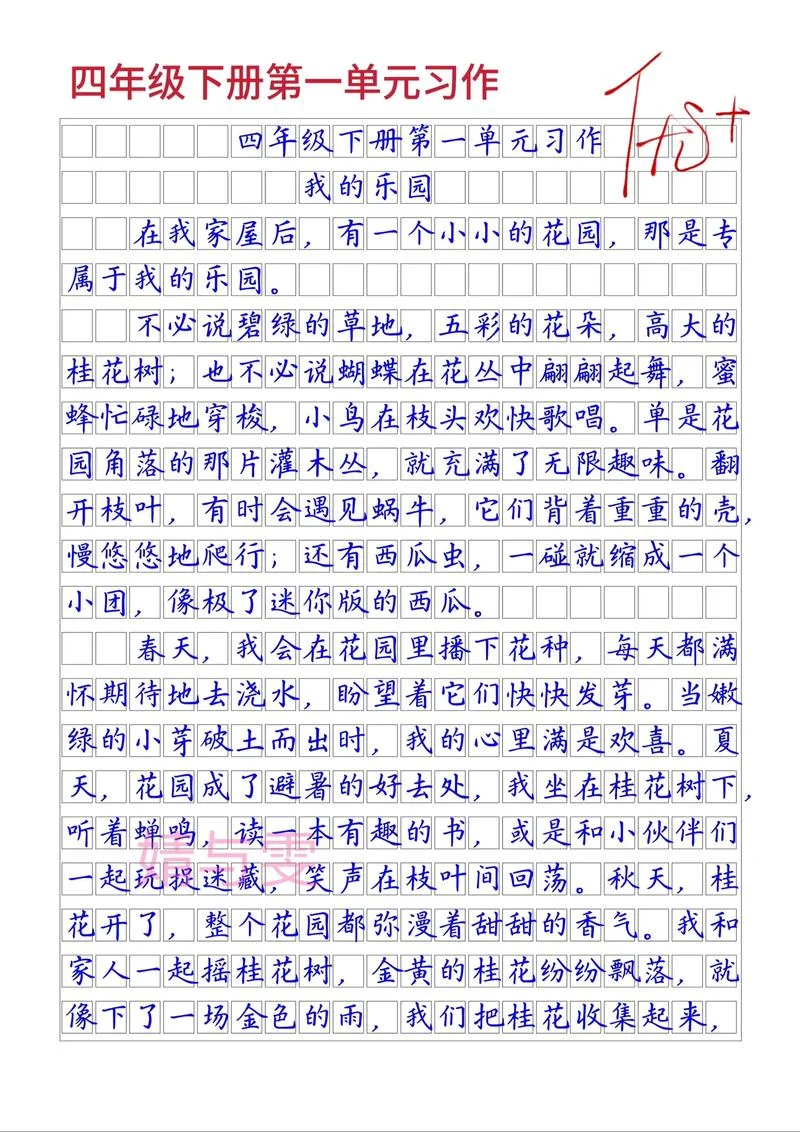 四年级下册第一单元习作
优+
四年级下册第一单元习作
我的乐园
在我家屋后，有一个小小的花园，那是专
属于我的乐园。
不必说碧绿的草地，五彩的花朵，高大的
桂花树；也不必说蝴蝶在花丛中翩翩起舞，蜜
蜂忙碌地穿梭，小鸟在枝头欢快歌唱。单是花
园角落的那片灌木丛，就充满了无限趣味。翻
开枝叶，有时会遇见蜗牛，它们背着重重的壳，
慢悠悠地爬行；还有西瓜虫，一碰就缩成一个
小团，像极了迷你版的西瓜。
春天，我会在花园里播下花种，每天都满
怀期待地去浇水，盼望着它们快快发芽。当嫩
绿的小芽破土而出时，我的心里满是欢喜。夏
天，花园成了避暑的好去处，我坐在桂花树下，
听着蝉鸣，读一本有趣的书，或是和小伙伴们
一起玩捉迷藏，笑声在枝叶间回荡。秋天，桂
花开了，整个花园都弥漫着甜甜的香气。我和
家人一起摇桂花树，金黄的桂花纷纷飘落，就
像下了一场金色的雨，我们把桂花收集起来，
婧与雯